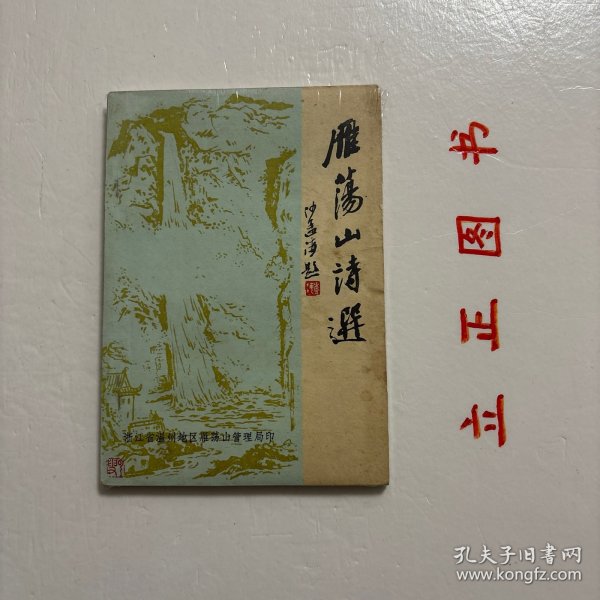 雁蕩山詩選
沙孟海题
浙江省温州地区雁荡山管理局印
立正图书
孔夫子旧书网
www.kongfz.com